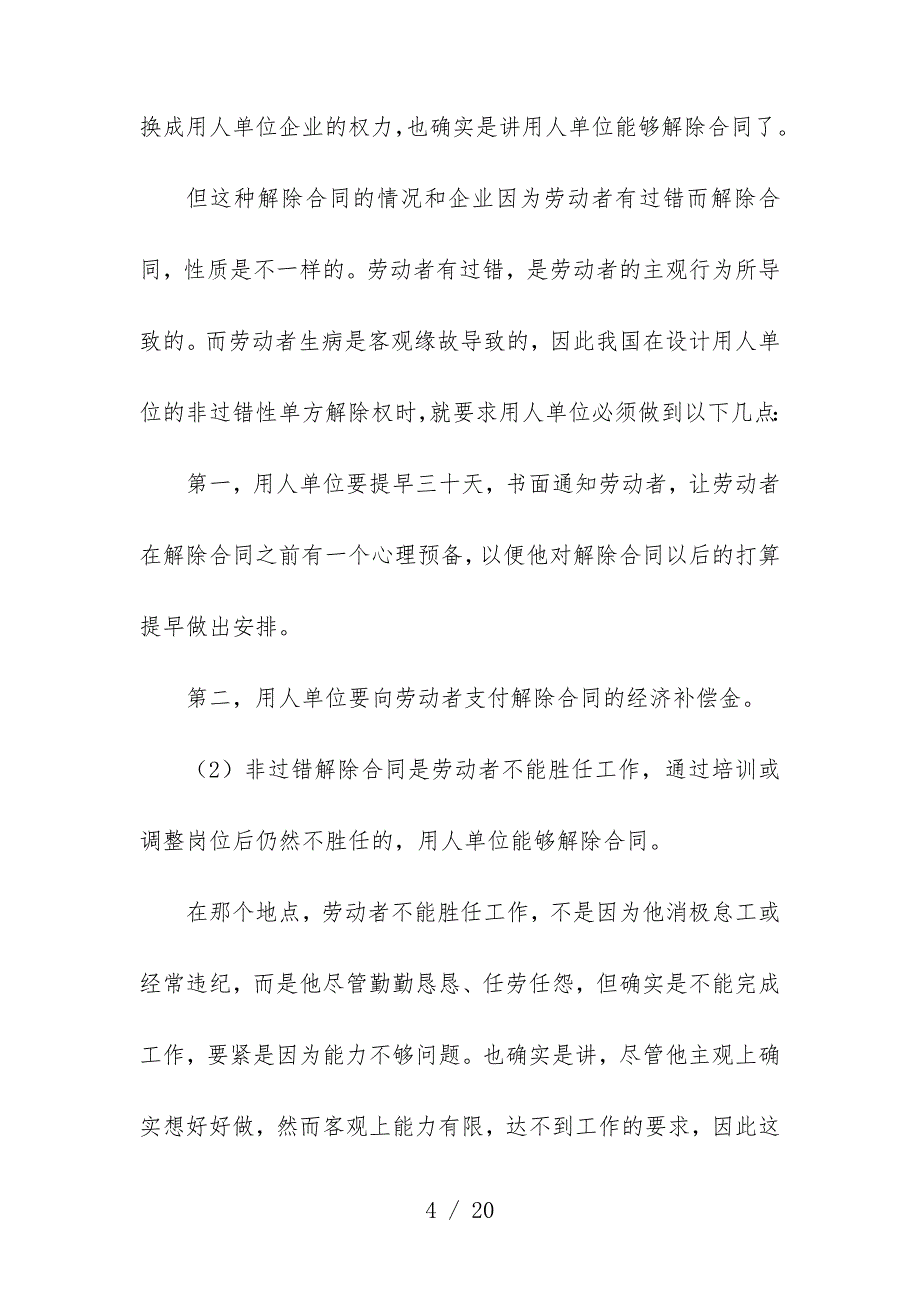 换成用人单位企业的权力，也确实是讲用人单位能够解除合同了。
但这种解除合同的情况和企业因为劳动者有过错而解除合
同，性质是不一样的。劳动者有过错，是劳动者的主观行为所导
致的。而劳动者生病是客观缘故导致的，因此我国在设计用人单
位的非过错性单方解除权时，就要求用人单位必须做到以下几点：
第一，用人单位要提早三十天，书面通知劳动者，让劳动者
在解除合同之前有一个心理预备，以便他对解除合同以后的打算
提早做出安排。
第二，用人单位要向劳动者支付解除合同的经济补偿金。
（2）非过错解除合同是劳动者不能胜任工作，通过培训或
调整岗位后仍然不胜任的，用人单位能够解除合同。
在那个地点，劳动者不能胜任工作，不是因为他消极怠工或
经常违纪，而是他尽管勤勤恳恳、任劳任怨，但确实是不能完成
工作，要紧是因为能力不够问题。也确实是讲，尽管他主观上确
实想好好做，然而客观上能力有限，达不到工作的要求，因此这
4 / 20